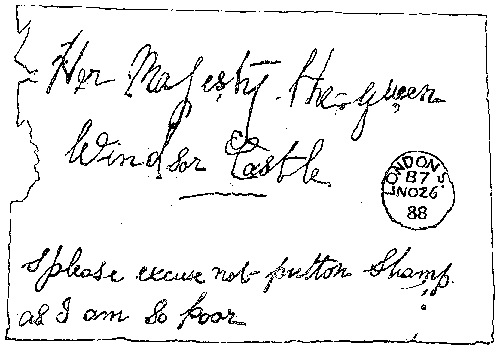 Her Majesty the queen
Windsor Castle
LONDON S.
B7
NO26
88
please excuse not putton stamp
as I am so poor